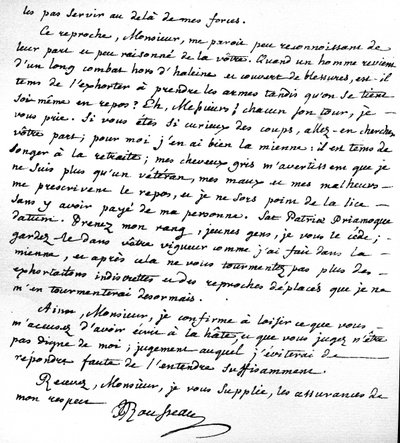 les pas servir au delà de mes forces.
Ce reproche, Monsieur, me paroit peu reconnoissant de
leur part et peu raisonné de la vôtre. Quand un homme revient
d'un long combat hors d'haleine et couvert de blessures, est-il
tems de l'exhorter à prendre les armes tandis qu'on se tient
soi-même en repos? Eh, Messieurs; chacun son tour, je
vous prie. Si vous êtes si curieux des coups, allez-en chercher
vôtre part; pour moi j'en ai bien la mienne: il est tems de
songer à la retraite; mes cheveux gris m'avertissent que je
ne suis plus qu'un vétéran, mes maux et mes malheurs
me prescrivent le repos, et je ne sors point de la lice
sans y avoir payé de ma personne. Sat Patriæ Priamoque
datum. Prenez mon rang, jeunes gens, je vous le céde;
gardez-le dans vôtre vigueur comme j'ai fait dans la
mienne, et après cela ne vous tourmentez pas plus des
exhortations indiscrettes et des reproches déplacés que je ne
m'en tourmenterai desormais.
Ainsi, Monsieur, je confirme à loisir ce que vous
m'accusez d'avoir écrit à la hâte, et que vous jugez n'être
pas digne de moi; jugement auquel j'éviterai de
répondre faute de l'entendre suffisamment.
Recevez, Monsieur, je vous supplie, les assurances de
mon respect
JJRousseau